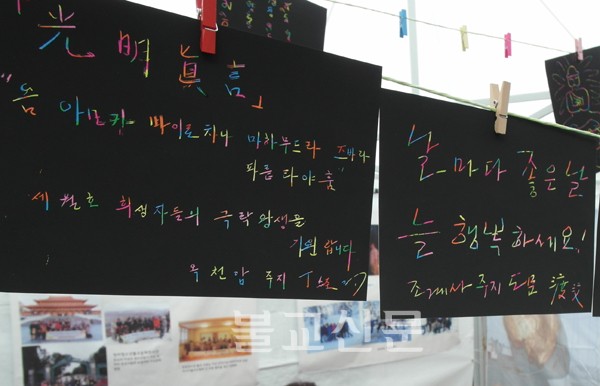 光明眞言
"옴 아모카 바이로차나 마하무드라 즈바라
파릅타야 훔"
세월호 희생자들의 극락왕생을
기원합니다
옥천암 주지
날마다 좋은날
늘 행복하세요!
조계사 주지 도문
불교신문